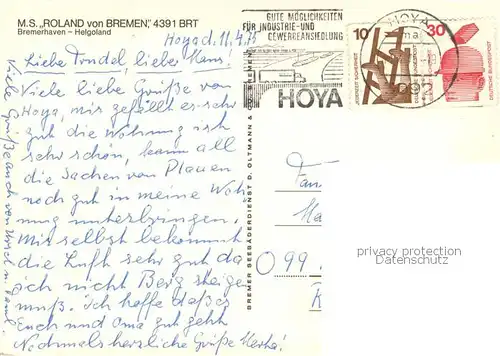 M.S. „ROLAND von BREMEN", 4391 BRT
Bremerhaven – Helgoland
Hoya d. 11.4.75
Liebe Trudel lieber Hans!
Viele liebe Grüße von
Hoya, mir gefällt es sehr
gut die Wohnung ist
sehr schön, kann all
die Sachen von Plauen
noch gut in meine Woh
nung unterbringen.
Mir selbst bekommt
die Luft sehr gut da
ich nicht Berg steigen
muß. Ich hoffe daß es
Euch und Oma gut geht
Nochmals herzliche Grüße Herta!
Viele Grüße auch von
BREMER SEEBÄDERDIENST D. OLTMANN & CO. BREMEN
GUTE MÖGLICHKEITEN
FÜR INDUSTRIE-UND
GEWERBEANSIEDLUNG
HOYA
HOYA
10
30
JEDERZEIT SICHERHEIT
DEUTSCHE BUNDESPOST
Fam
Ha
O 99
privacy protection
Datenschutz